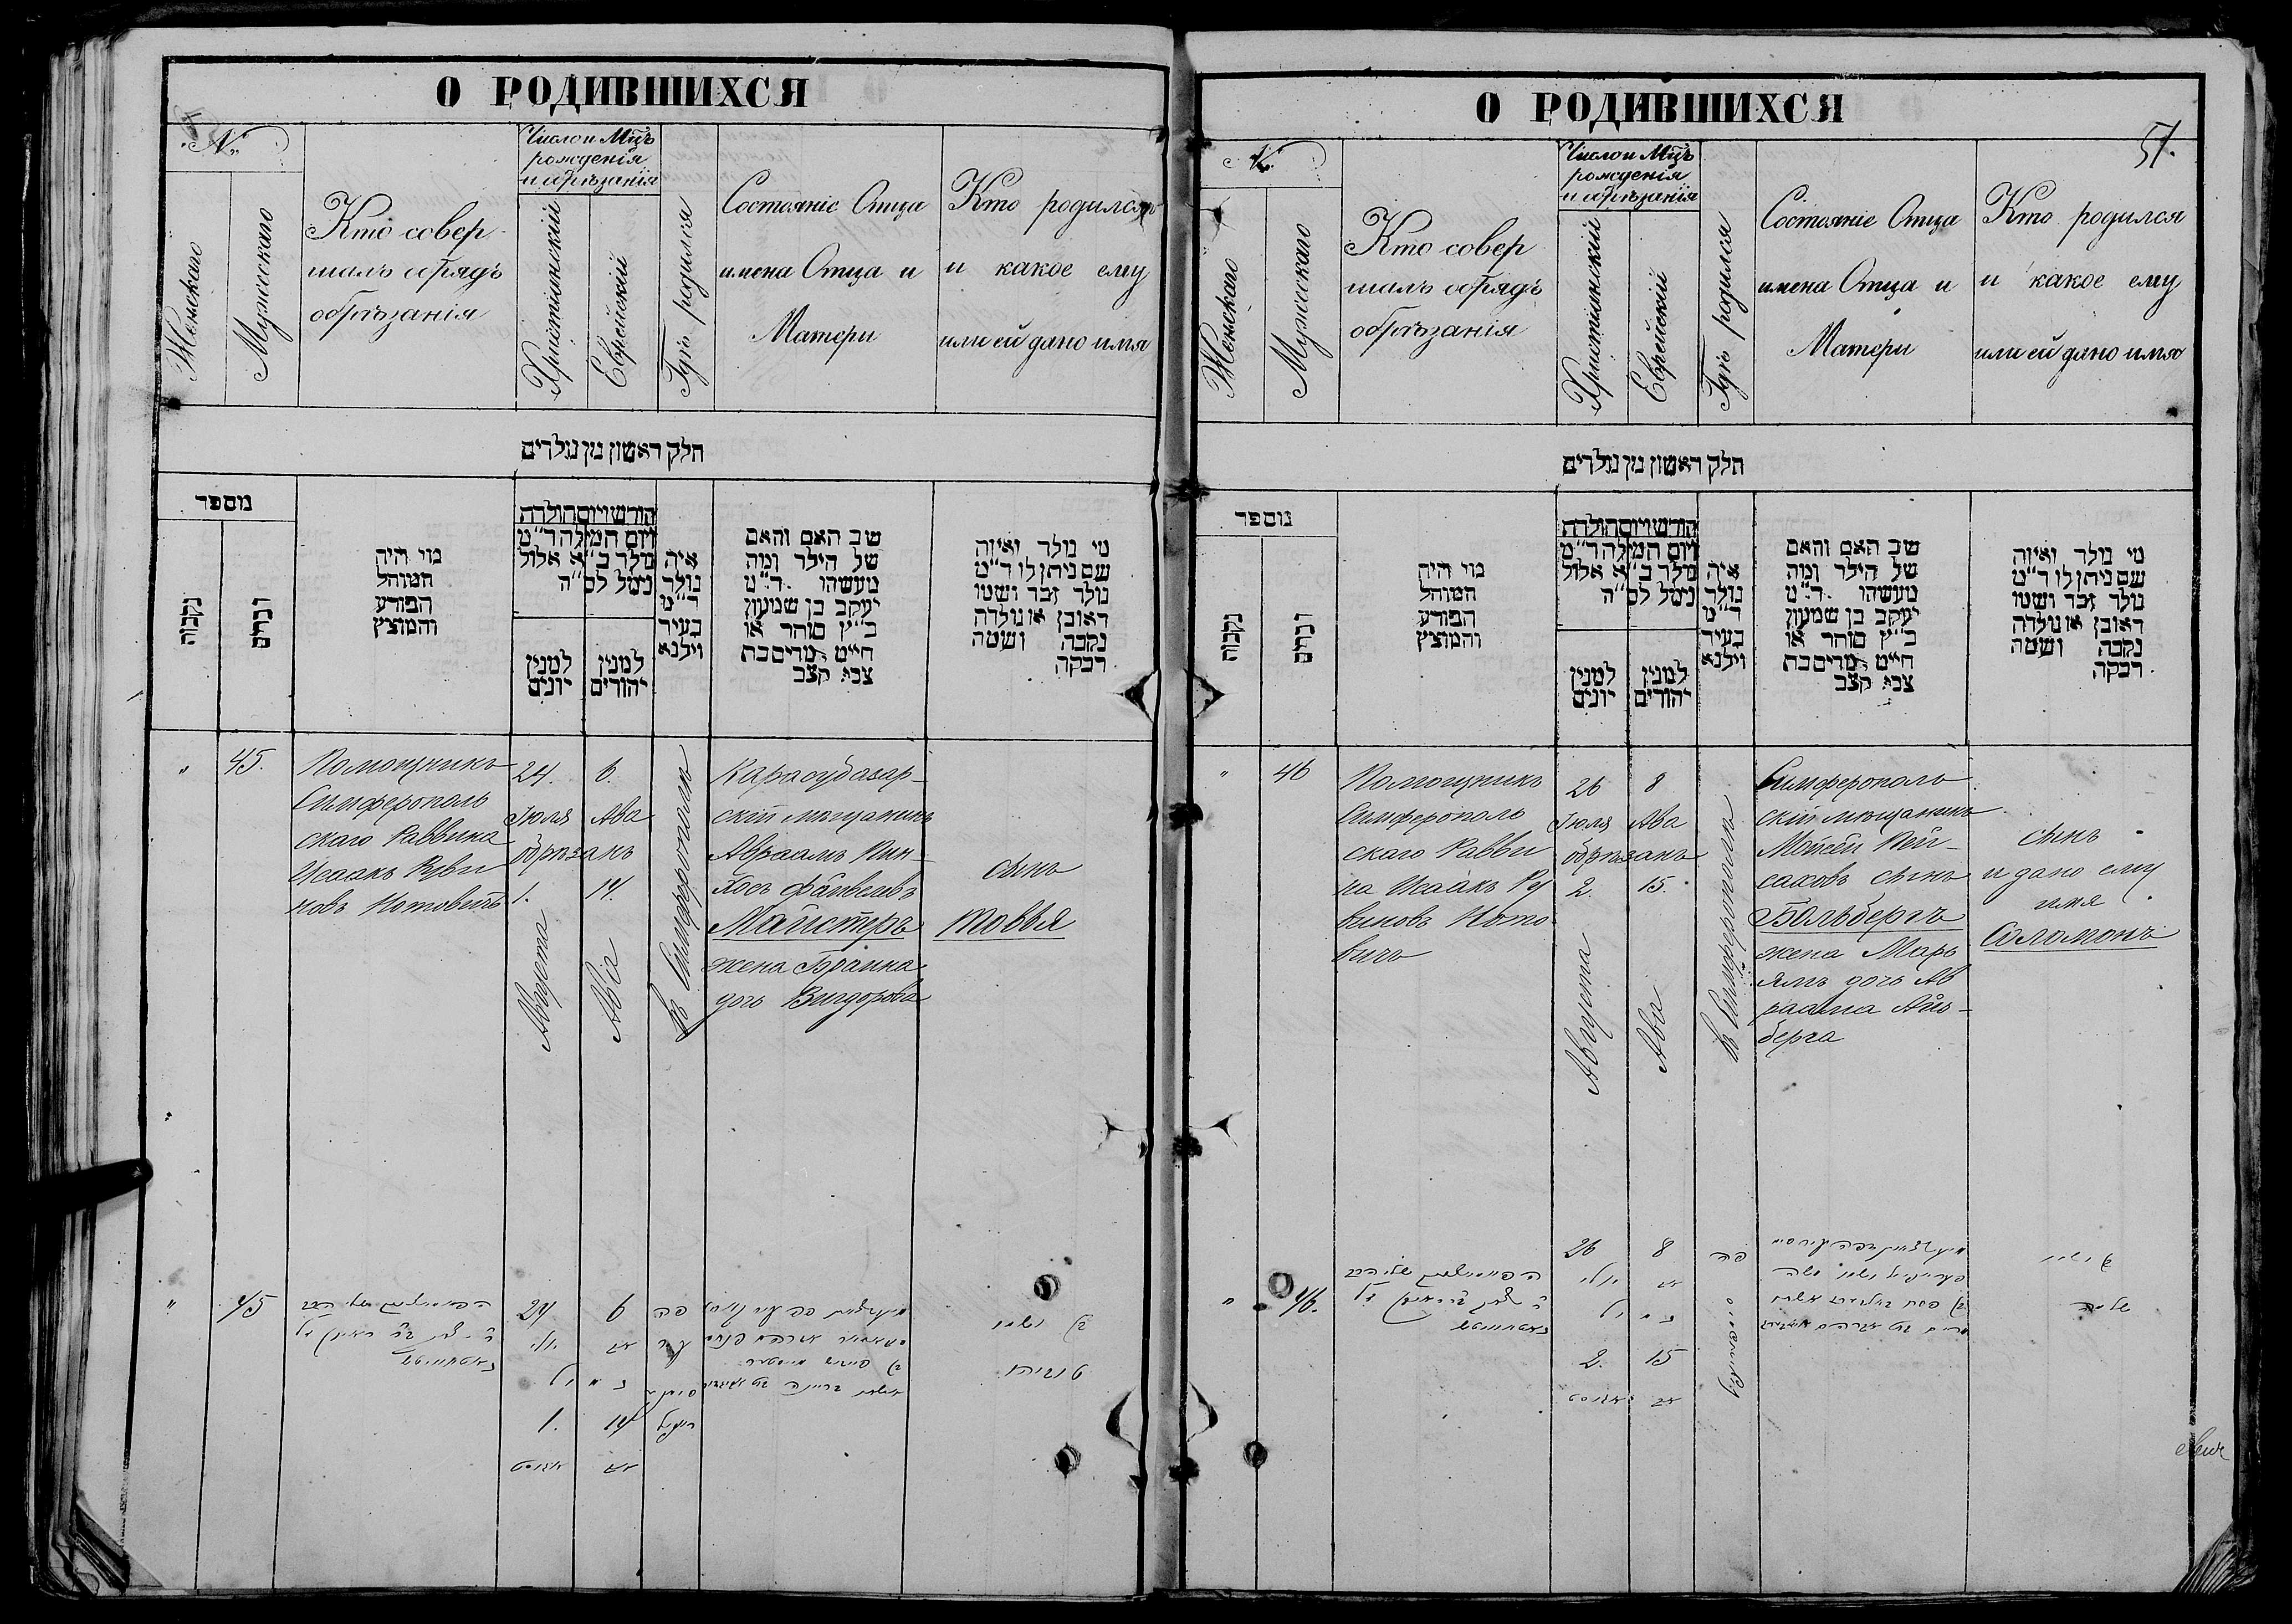 О РОДИВШИХСЯ
№
Женскаго
Мужескаго
Кто совер
шалъ обрядъ
обрѣзанія
Число и Мцъ
рожденія
и обрѣзанія
Христіянскій
Еврейскій
Гдѣ родился
Состояніе Отца
имена Отца и
Матери
Кто родился
и какое ему
или ей дано имя
חלק ראשון מן נולדים
מספר
נקבות
זכרים
מי היה
המוהל
הפורע
והמוצץ
חודש ויום הולדת
ויום המילה ד״מ
נולד ב״א אלול
נימל לס״ה
למנין
יונים
למנין
יהודים
איה
נולד
ד״מ
בעיר
וילנא
שב האם והאם
של הילד ומה
מעשהו ד״מ
יעקב בן שמעון
כ״ץ סוחר או
חייט מרים בת
צבי קצב
מי נולד ואיזה
שם ניתן לו ד״מ
נולד זכר ושמו
ראובן או נולדה
נקבה ושמה
רבקה
" 45.
Помощникъ
Симферополь
скаго Раввина
Исаакъ Руви
новъ Нотовичъ
24. 6.
Іюля Ава
обрѣзанъ
1. 14.
Августа
Ава
въ Симферополѣ
Карасубазар-
скій мѣщанинъ
Авраамъ Пин-
хосъ Фаивелевъ
Майстеръ
жена Браина
дочь Вигдорова
сынъ
Товья
" 45
24 6 פה
יולי אב
נימול
1. 14
אוגוסט אב
בן ושמו
טוביה
О РОДИВШИХСЯ
51.
№
Женскаго
Мужескаго
Кто совер
шалъ обрядъ
обрѣзанія
Число и Мцъ
рожденія
и обрѣзанія
Христіянскій
Еврейскій
Гдѣ родился
Состояніе Отца
имена Отца и
Матери
Кто родился
и какое ему
или ей дано имя
חלק ראשון מן נולדים
מספר
נקבות
זכרים
מי היה
המוהל
הפורע
והמוצץ
חודש ויום הולדת
ויום המילה ד״מ
נולד ב״א אלול
נימל לס״ה
למנין
יונים
למנין
יהודים
איה
נולד
ד״מ
בעיר
וילנא
שב האם והאם
של הילד ומה
מעשהו ד״מ
יעקב בן שמעון
כ״ץ סוחר או
חייט מרים בת
צבי קצב
מי נולד ואיזה
שם ניתן לו ד״מ
נולד זכר ושמו
ראובן או נולדה
נקבה ושמה
רבקה
" 46
Помощникъ
Симферополь
скаго Равви
на Исаакъ Ру
виновъ Ното
вичъ
26 8
Іюля Ава
обрѣзанъ
2. 15.
Августа
Ава
въ Симферополѣ
Симферополь
скій мѣщанинъ
Мойсей Пей-
саховъ сынъ
Больбергъ
жена Марь
ямъ дочь Ав
раама Айз-
берга
сынъ
и дано ему
имя
Соломонъ
" 46.
26 8 פה
יולי אב
נימול
2. 15
אוגוסט אב
בן ושמו
שלמה